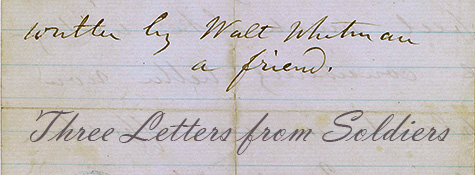 written by Walt Whitman
a friend.
Three Letters from Soldiers